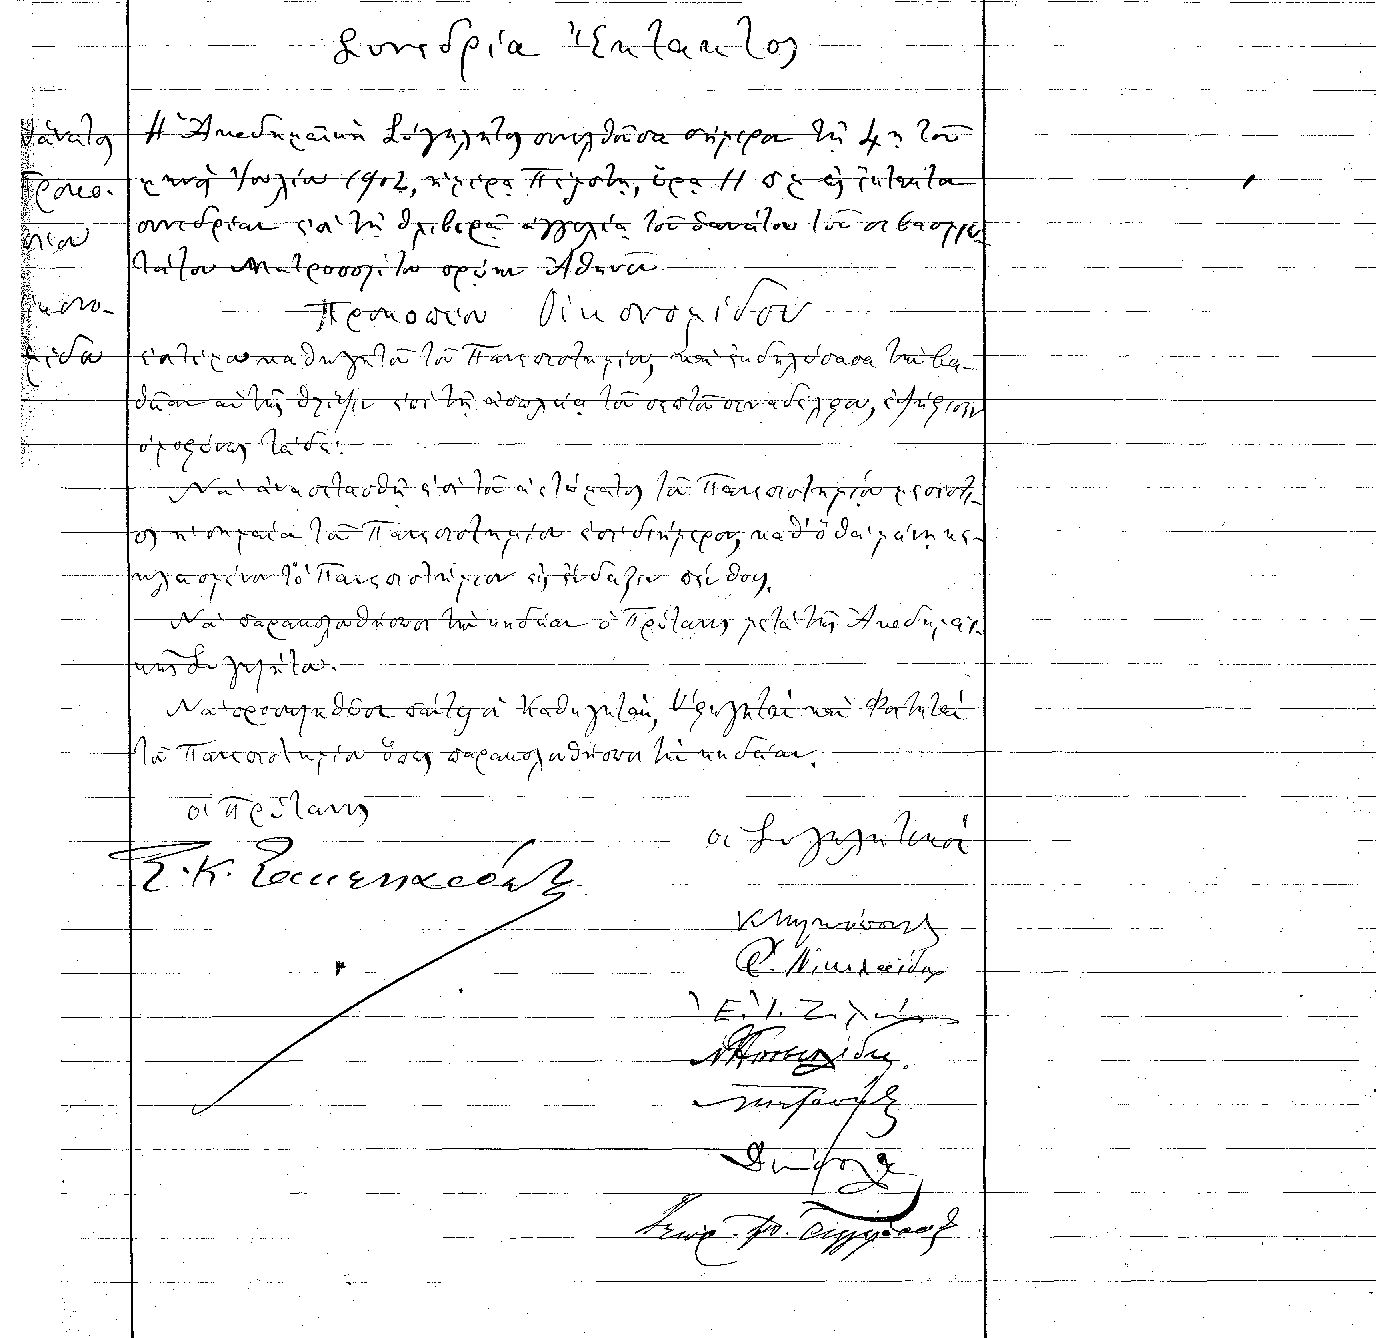 Συνεδρία Ἔκτακτος
θάνατος
Προκο-
πίου
Οἰκονο-
μίδου
Ἡ Ἀκαδημαϊκὴ Σύγκλητος συνελθοῦσα σήμερα τῇ 4ῃ τοῦ
μηνὸς Ἰουλίου 1902, ἡμέρᾳ Πέμπτῃ, ὥρᾳ 11 π.μ. εἰς ἔκτακτον
συνεδρίαν ἐπὶ τῇ θλιβερᾷ ἀγγελίᾳ τοῦ θανάτου τοῦ σεβασμιω-
τάτου Μητροπολίτου πρώην Ἀθηνῶν
Προκοπίου Οἰκονομίδου
ἑσπέρου καθηγητοῦ τοῦ Πανεπιστημίου, καὶ ἐκδηλώσασα τὴν βα-
θεῖαν αὐτῆς θλῖψιν ἐπὶ τῇ ἀπωλείᾳ τοῦ σεπτοῦ συναδέλφου, ἐψήφισεν
ὁμοφώνως τάδε:
Νὰ ἀναπετασθῇ ἐπὶ τοῦ ἀετώματος τοῦ Πανεπιστημίου μεσίστι-
ος ἡ σημαία τοῦ Πανεπιστημίου ἐπὶ διήμερον, καθ' ὃ θὰ μείνῃ κε-
κλεισμένον τὸ Πανεπιστήμιον εἰς ἔνδειξιν πένθους.
Νὰ παρακολουθήσωσι τὴν κηδείαν ὁ Πρύτανις μετὰ τῆς Ἀκαδημαϊ-
κῆς Συγκλήτου.
Νὰ προσκληθῶσι πάντες οἱ Καθηγηταί, Ὑφηγηταὶ καὶ Φοιτηταὶ
τοῦ Πανεπιστημίου ὅπως παρακολουθήσωσι τὴν κηδείαν.
ὁ Πρύτανις
οἱ Συγκλητικοί
Σ. Κ.
Κ Μητσόπουλος
Ρ. Νικολαΐδης
Ε. Ι. Ζολώτας